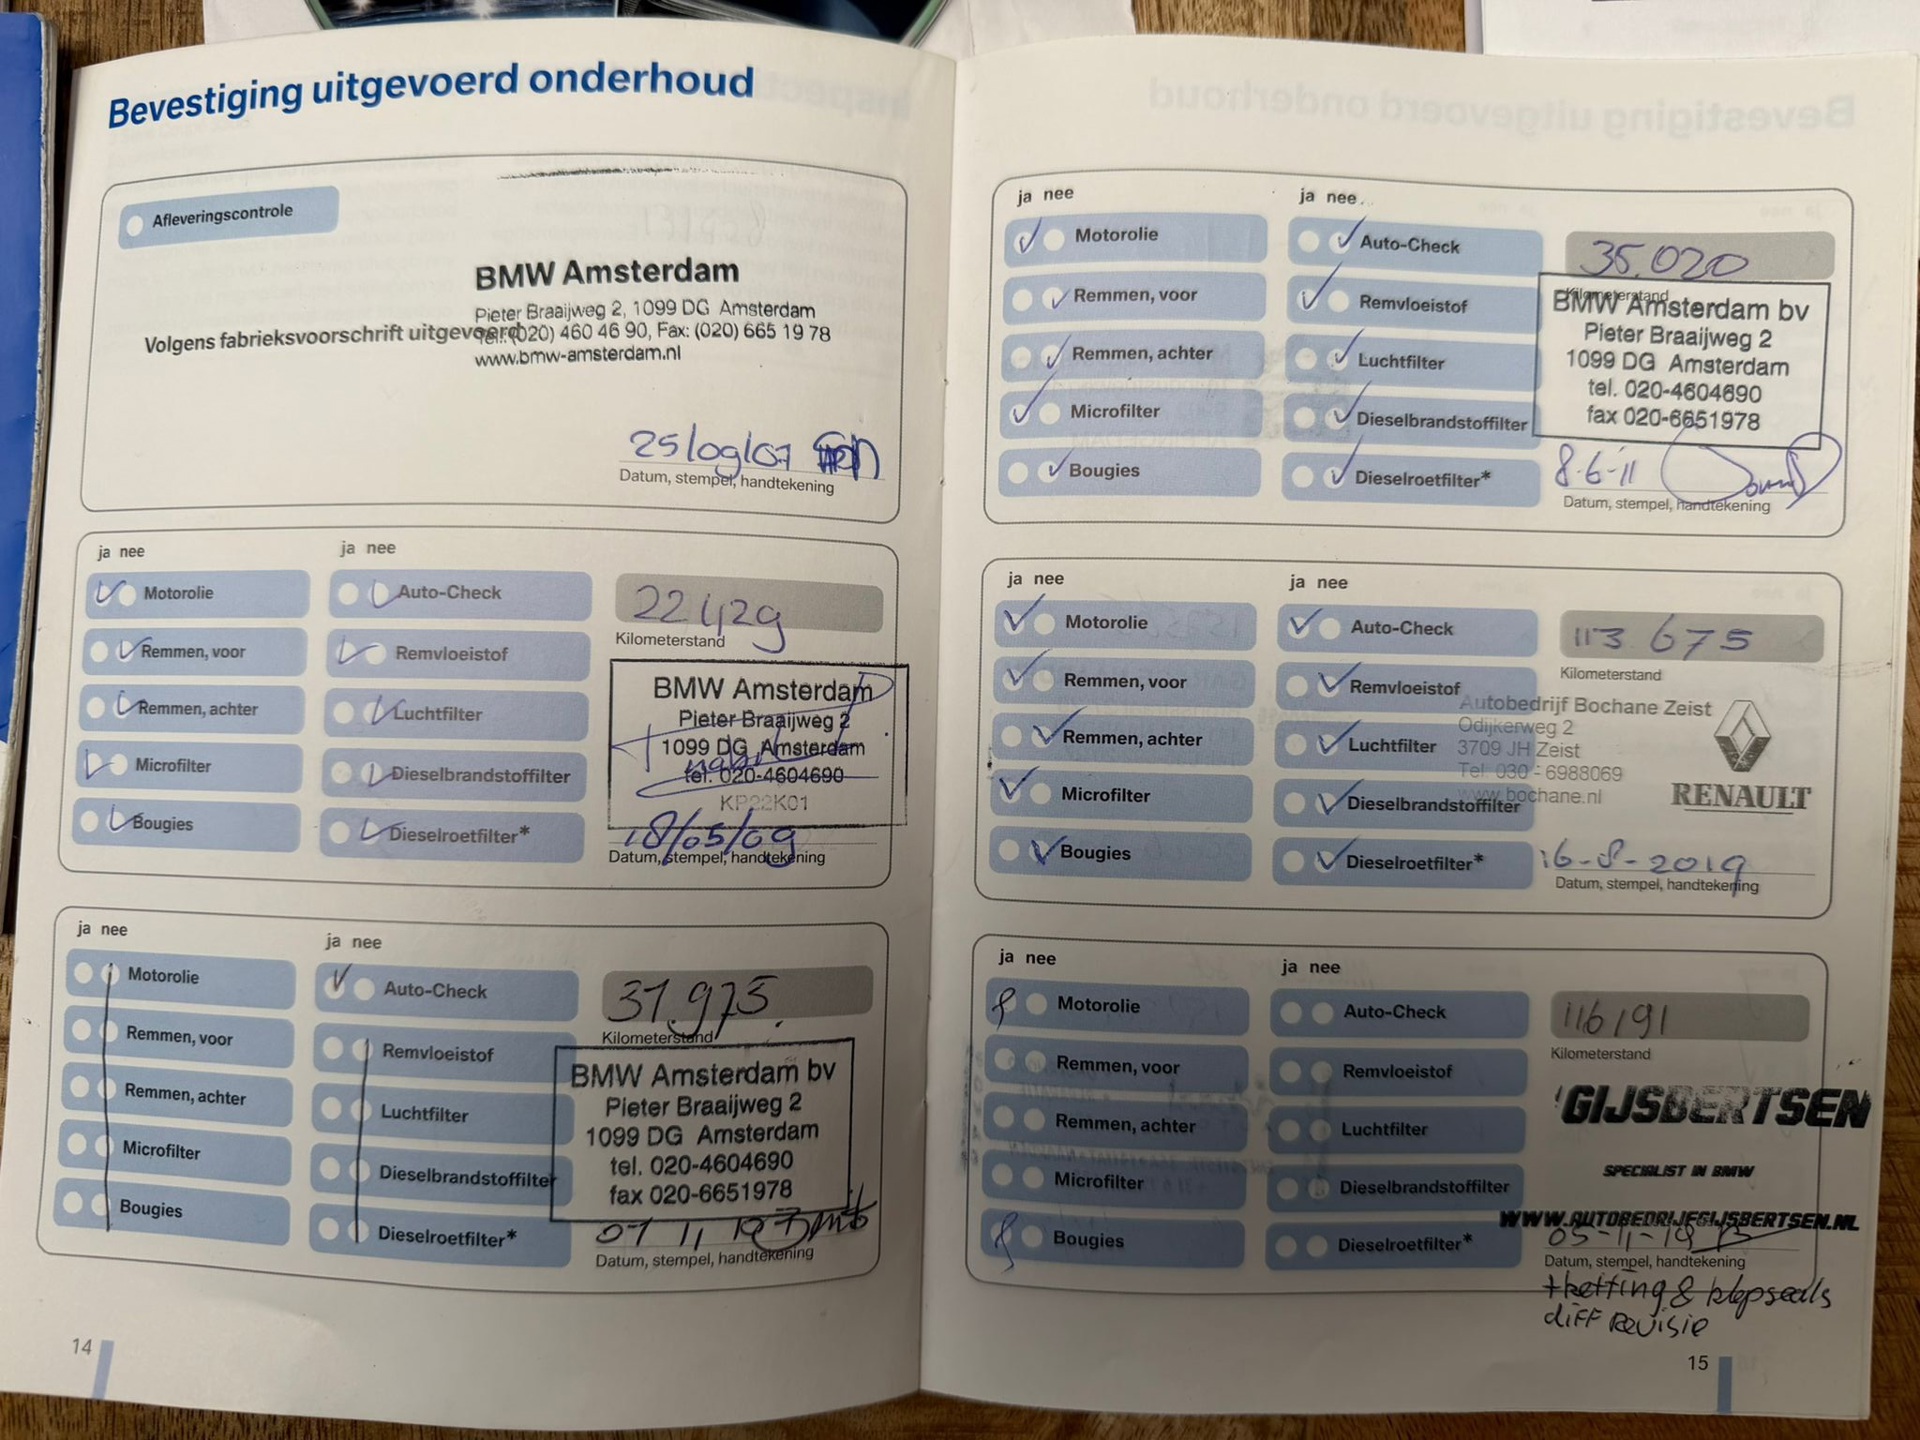 Bevestiging uitgevoerd onderhoud
Afleveringscontrole
BMW Amsterdam
Pieter Braaijweg 2, 1099 DG Amsterdam
Volgens fabrieksvoorschrift uitgevoerd
Tel.: (020) 460 46 90, Fax: (020) 665 19 78
www.bmw-amsterdam.nl
25/09/07
Datum, stempel, handtekening
ja nee
ja nee
Motorolie
Auto-Check
22429
Kilometerstand
Remmen, voor
Remvloeistof
Remmen, achter
Luchtfilter
Microfilter
Dieselbrandstoffilter
Bougies
Dieselroetfilter*
BMW Amsterdam
Pieter Braaijweg 2
1099 DG Amsterdam
tel. 020-4604690
KP22K01
18/05/09
Datum, stempel, handtekening
ja nee
ja nee
Motorolie
Auto-Check
31.975.
Kilometerstand
Remmen, voor
Remvloeistof
Remmen, achter
Luchtfilter
Microfilter
Dieselbrandstoffilter
Bougies
Dieselroetfilter*
BMW Amsterdam bv
Pieter Braaijweg 2
1099 DG Amsterdam
tel. 020-4604690
fax 020-6651978
Datum, stempel, handtekening
14
ja nee
ja nee
Motorolie
Auto-Check
35.020
Kilometerstand
Remmen, voor
Remvloeistof
Remmen, achter
Luchtfilter
Microfilter
Dieselbrandstoffilter
Bougies
Dieselroetfilter*
BMW Amsterdam bv
Pieter Braaijweg 2
1099 DG Amsterdam
tel. 020-4604690
fax 020-6651978
8-6-11
Datum, stempel, handtekening
ja nee
ja nee
Motorolie
Auto-Check
113 675
Kilometerstand
Remmen, voor
Remvloeistof
Remmen, achter
Luchtfilter
Microfilter
Dieselbrandstoffilter
Bougies
Dieselroetfilter*
Autobedrijf Bochane Zeist
Odijkerweg 2
3709 JH Zeist
Tel: 030 - 6988069
www.bochane.nl
RENAULT
16-8-2019
Datum, stempel, handtekening
ja nee
ja nee
Motorolie
Auto-Check
116191
Kilometerstand
Remmen, voor
Remvloeistof
Remmen, achter
Luchtfilter
Microfilter
Dieselbrandstoffilter
Bougies
Dieselroetfilter*
GIJSBERTSEN
SPECIALIST IN BMW
WWW.AUTOBEDRIJFGIJSBERTSEN.NL
05-11-19
Datum, stempel, handtekening
+ketting & klepseals
diff Revisie
15